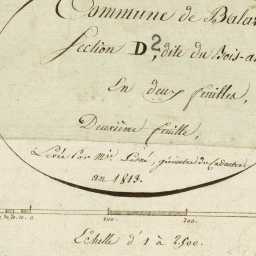 Commune de Bala
Section D, dite du Bois-
En deux feuilles,
Deuxième feuille,
Levée Par Mr. géomètre du Cadastre
an 1813.
0 100. 200.
Echelle d' 1 à 2500.